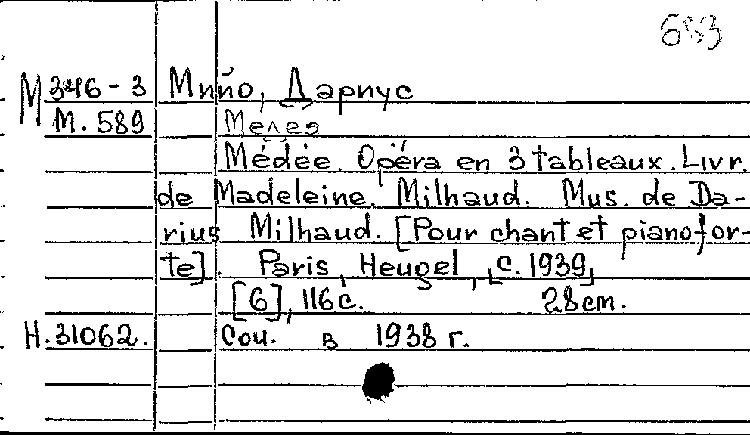 М 346-3 Мийо, Дариус
М. 589 Медея
Médée. Opéra en 3 tableaux. Livr.
de Madeleine Milhaud. Mus. de Da-
rius Milhaud. [Pour chant et pianofor-
te]. Paris, Heugel, [c. 1939]
[6], 116 c. 28 cm.
Н. 31062. Соч. в 1938 г.